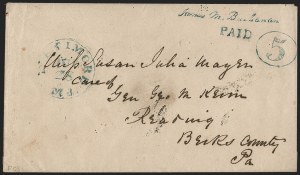 James M. Buchanan
PAID
5
BALTIMORE
Md.
Miss Susan Julia Mayer
care of
Gen Geo M Keim
Reading
Berks County
Pa